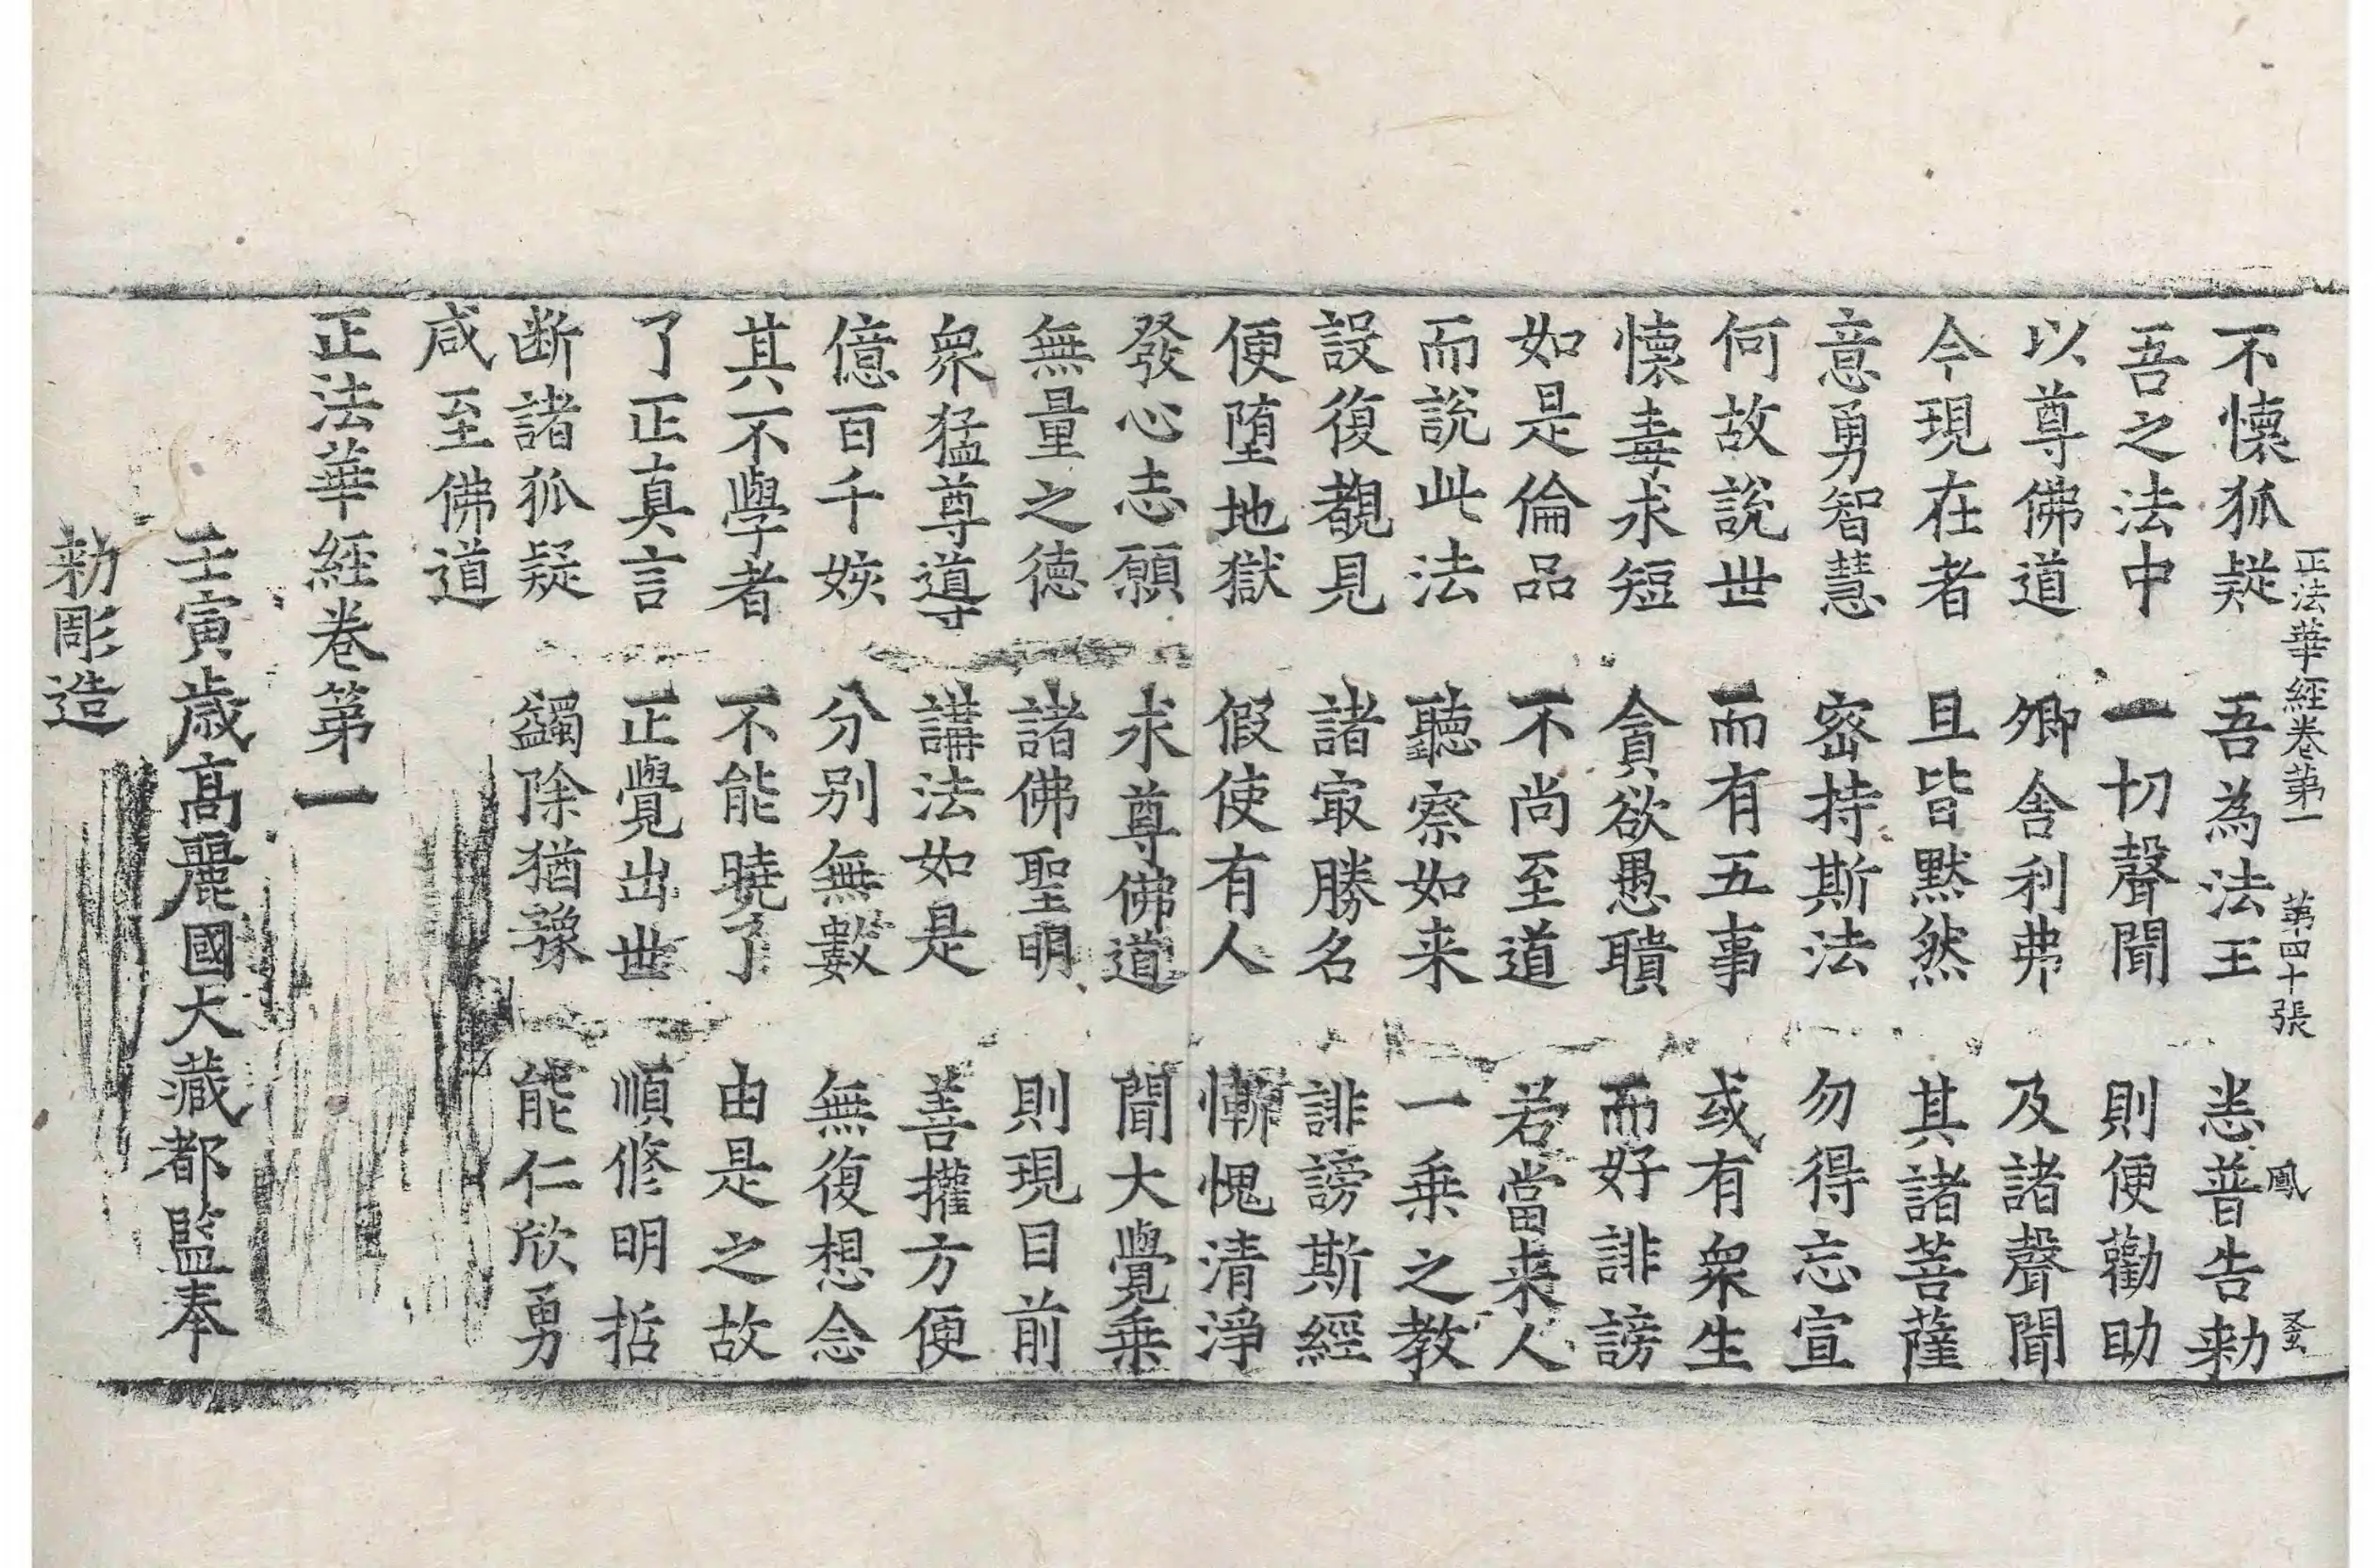 正法華經卷第一　第四十張　鳳
不懷狐疑　吾為法王　悉普告勑
吾之法中　一切聲聞　則便勸助
以尊佛道　卿舍利弗　及諸聲聞
今現在者　且皆黙然　其諸菩薩
意勇智慧　密持斯法　勿得忘宣
何故說世　而有五事　或有衆生
懷毒求短　貪欲愚聵　而好誹謗
如是倫品　不尚至道　若當来人
而說此法　聽察如来　一乗之教
設復覩見　諸㝡勝名　誹謗斯經
便墮地獄　假使有人　慚愧清淨
發心志願　求尊佛道　聞大覺乗
無量之德　諸佛聖明　則現目前
衆猛尊導　講法如是　善權方便
億百千姟　分别無數　無復想念
其不學者　不能曉了　由是之故
了正真言　正覺出世　順修明哲
断諸狐疑　蠲除猶豫　能仁欣勇
咸至佛道
正法華經卷第一
壬寅歲髙麗國大藏都監奉
勑彫造